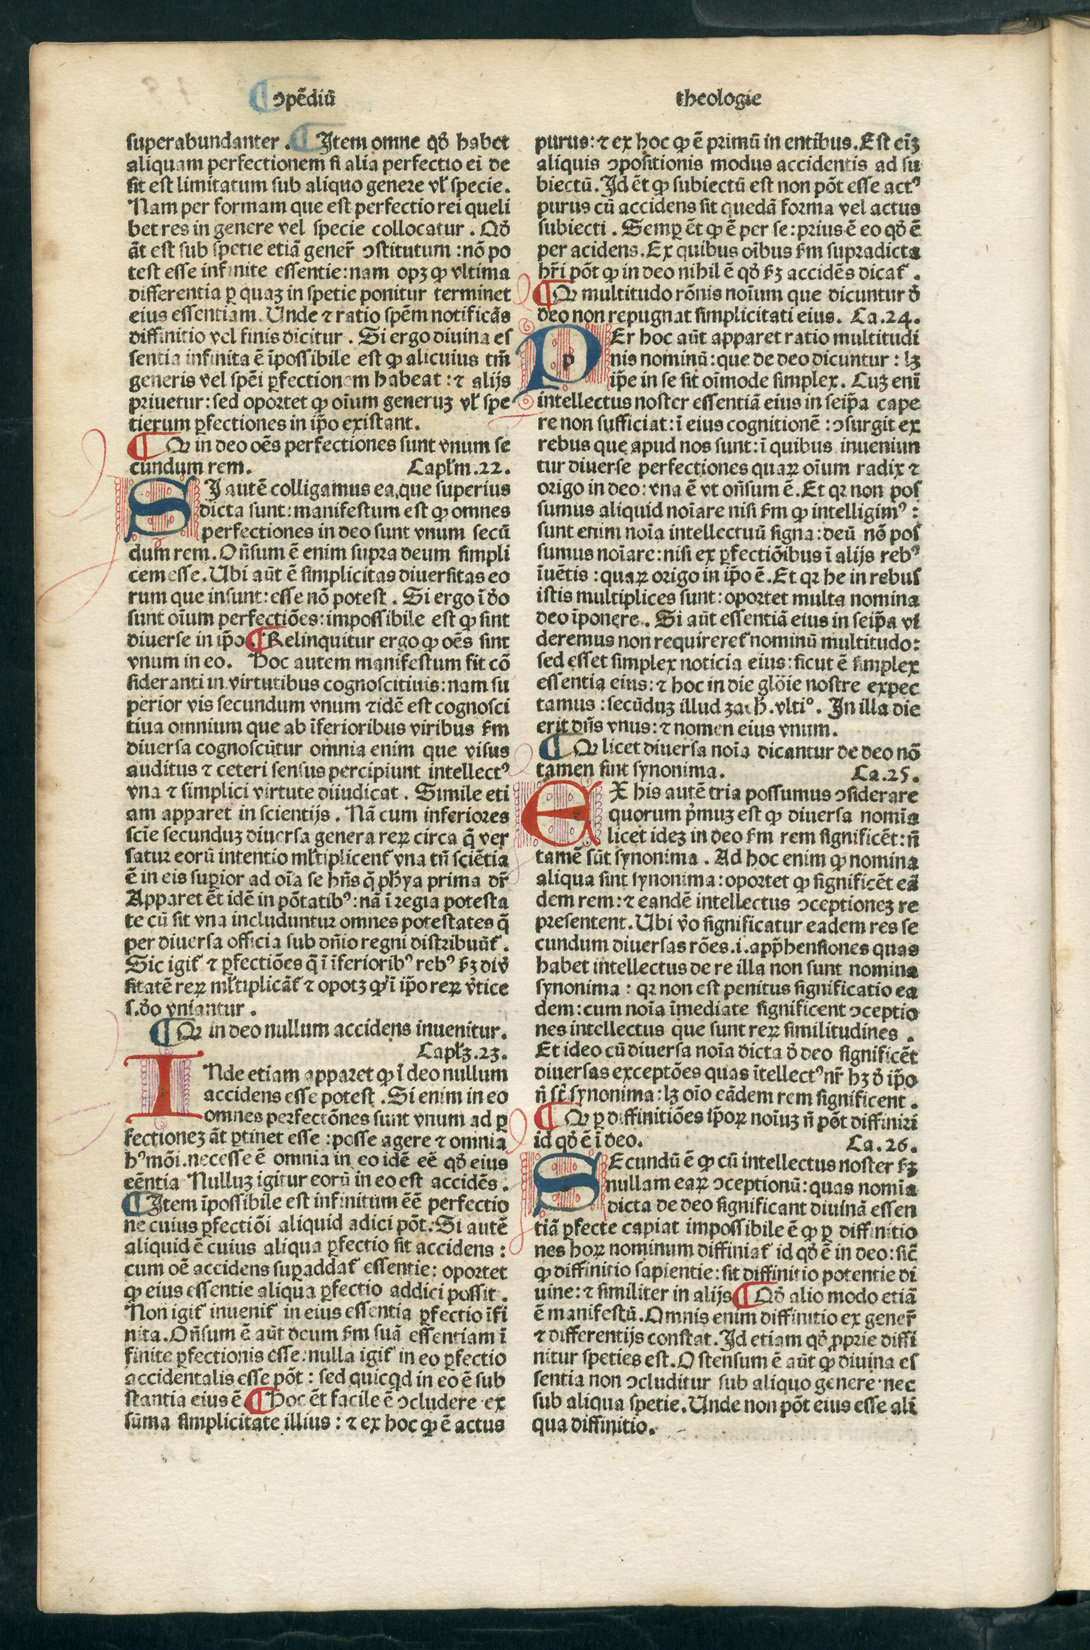 ↄpẽdiũ
theologie
superabundanter . ¶ Item omne qd̃ habet
aliquam perfectionem si alia perfectio ei de
sit est limitatum sub aliquo genere vl̃ specie.
Nam per formam que est perfectio rei queli
bet res in genere vel specie collocatur . Qd̃
ãt est sub spetie etiã gener̃ ↄstitutum : nõ po
test esse infinite essentie: nam opꝫ ꝙ vltima
differentia ꝑ quaꝫ in spetie ponitur terminet
eius essentiam. Unde ⁊ ratio spẽm notificãs
diffinitio vel finis dicitur . Si ergo diuina es
sentia infinita ẽ ĩpossibile est ꝙ alicuius tm̃
generis vel spẽi ꝑfectionem habeat : ⁊ alijs
priuetur : sed oportet ꝙ oĩum generuꝫ vl̃ spe
tierum ꝑfectiones in ip̃o existant.
¶ Q in deo oẽs perfectiones sunt vnum se
cundum rem. Capl̃m.22.
SI autẽ colligamus ea,que superius
dicta sunt: manifestum est ꝙ omnes
perfectiones in deo sunt vnum secũ
dum rem. Oñsum ẽ enim supra deum simpli
cem esse. Ubi aũt ẽ simplicitas diuersitas eo
rum que insunt: esse nõ potest . Si ergo ĩ do
sunt oĩum perfectiões: impossibile est ꝙ sint
diuerse in ip̃o ¶ Relinquitur ergo ꝙ oẽs sint
vnum in eo. Hoc autem manifestum fit cõ
sideranti in virtutibus cognoscitiuis: nam su
perior vis secundum vnum ⁊ idẽ est cognosci
tiua omnium que ab ĩferioribus viribus ẜm
diuersa cognoscũtur omnia enim que visus
auditus ⁊ ceteri sensus percipiunt intellectꝰ
vna ⁊ simplici virtute diiudicat . Simile eti
am apparet in scientijs . Nã cum inferiores
scĩe secunduꝫ diuersa genera reꝝ circa q̃ ver
satur eorũ intentio ml̃tiplicent̃ vna tñ sciẽtia
ẽ in eis suꝑior ad oĩa se hñs q̃ ph̃ya prima dr̃
Apparet ẽt idẽ in põtatibꝰ: nã ĩ regia potesta
te cũ sit vna includuntur omnes potestates q̃
per diuersa officia sub dñio regni distribuũt̃.
Sic igit̃ ⁊ ꝑfectiões q̃ ĩ ĩferioribꝰ rebꝰ ẜꝫ diũ
sitatẽ reꝝ ml̃tiplicãt̃ ⁊ opotꝫ ꝙ ĩ ip̃o reꝝ ṽtice
s.do vniantur .
¶ Q in deo nullum accidens inuenitur.
Capl̃ꝫ.23.
INde etiam apparet ꝙ ĩ deo nullum
accidens esse potest . Si enim in eo
omnes perfectõnes sunt vnum ad ꝑ
fectioneꝫ ãt ꝑtinet esse : posse agere ⁊ omnia
hꝰmõi.necesse ẽ omnia in eo idẽ eẽ qd̃ eius
eẽntia Nulluꝫ igitur eorũ in eo est accidẽs .
¶ Item ĩpossibile est infinitum ẽẽ perfectio
ne cuius ꝑfectiõi aliquid adici põt. Si autẽ
aliquid ẽ cuius aliqua ꝑfectio sit accidens :
cum oẽ accidens suꝑaddat̃ essentie: oportet
ꝙ eius essentie aliqua ꝑfectio addici possit .
Non igit̃ inuenit̃ in eius essentia ꝑfectio ĩfi
nita. Oñsum ẽ aũt deum ẜm suã essentiam ĩ
finite ꝑfectionis esse: nulla igit̃ in eo ꝑfectio
accidentalis esse põt : sed quicqd in eo ẽ sub
stantia eius ẽ ¶ Hoc ẽt facile ẽ ↄcludere ex
sũma simplicitate illius : ⁊ ex hoc ꝙ ẽ actus
purus: ⁊ ex hoc ꝙ ẽ primũ in entibus. Est eĩꝫ
aliquis ↄpositionis modus accidentis ad su
biectũ. Id ẽt ꝙ subiectũ est non põt esse actꝰ
purus cũ accidens sit quedã forma vel actus
subiecti . Semꝑ ẽt ꝙ ẽ per se : prius ẽ eo qd̃ ẽ
per acidens. Ex quibus oĩbus ẜm supradicta
hr̃i põt ꝙ in deo nihil ẽ qd̃ ẜꝫ accidẽs dicat̃ .
¶ Q multitudo rõnis noĩum que dicuntur d̃
deo non repugnat simplicitati eius. Ca.24.
PEr hoc aũt apparet ratio multitudi
nis nominũ: que de deo dicuntur : lꝫ
ip̃e in se sit oĩmode simplex. Cuꝫ enĩ
intellectus noster essentiã eius in seip̃a cape
re non sufficiat: ĩ eius cognitionẽ : ↄsurgit ex
rebus que apud nos sunt: ĩ quibus inueniun
tur diuerse perfectiones quaꝝ oĩum radix ⁊
origo in deo: vna ẽ vt oñsum ẽ. Et qꝛ non pos
sumus aliquid noĩare nisi ẜm ꝙ intelligimꝰ :
sunt enim noĩa intellectuũ signa: deũ nõ pos
sumus noĩare: nisi ex ꝑfectiõibus ĩ alijs rebꝰ
ĩuẽtis : quaꝝ origo in ip̃o ẽ. Et qꝛ he in rebus
istis multiplices sunt: oportet multa nomina
deo ĩponere . Si aũt essentiã eius in seip̃a vi
deremus non requireret̃ nominũ multitudo:
sed esset simplex noticia eius: sicut ẽ simplex
essentia eius: ⁊ hoc in die glõie nostre expec
tamus : secũduꝫ illud zach̃.vltiº. In illa die
erit dñs vnus: ⁊ nomen eius vnum.
¶ Q licet diuersa noĩa dicantur de deo nõ
tamen sint synonima. Ca.25.
EX his autẽ tria possumus ↄsiderare
quorum p̃muꝫ est ꝙ diuersa nomĩa
licet ideꝫ in deo ẜm rem significẽt: ñ
tamẽ sũt synonima . Ad hoc enim ꝙ nomina
aliqua sint synonima: oportet ꝙ significẽt eã
dem rem: ⁊ eandẽ intellectus ↄceptioneꝫ re
presentent. Ubi ṽo significatur eadem res se
cundum diuersas rões.i.app̃hensiones quas
habet intellectus de re illa non sunt nomina
synonima : qꝛ non est penitus significatio ea
dem: cum noĩa ĩmediate significent ↄceptio
nes intellectus que sunt reꝝ similitudines .
Et ideo cũ diuersa noĩa dicta d̃ deo significẽt
diuersas exceptões quas ĩtellectꝰ nr̃ hꝫ d̃ ip̃o
ñ st̃ synonima: lꝫ oĩo eãdem rem significent .
¶ Q ꝑ diffinitiões ip̃oꝝ noĩuꝫ ñ põt diffiniri
id qd̃ ẽ ĩ deo. Ca.26.
SEcundũ ẽ ꝙ cũ intellectus noster ẜꝫ
nullam eaꝝ ↄceptionũ: quas nomĩa
dicta de deo significant diuinã essen
tiã ꝑfecte capiat impossibile ẽ ꝙ ꝑ diffinitio
nes hoꝝ nominum diffiniat̃ id qd̃ ẽ in deo: sic̃
ꝙ diffinitio sapientie: sit diffinitio potentie di
uine: ⁊ similiter in alijs ¶ Qd̃ alio modo etiã
ẽ manifestũ. Omnis enim diffinitio ex gener̃
⁊ differentijs constat. Id etiam qd̃ ꝓprie diffi
nitur speties est. Ostensum ẽ aũt ꝙ diuina es
sentia non ↄcluditur sub aliquo genere nec
sub aliqua spetie. Unde non põt eius esse ali
qua diffinitio.